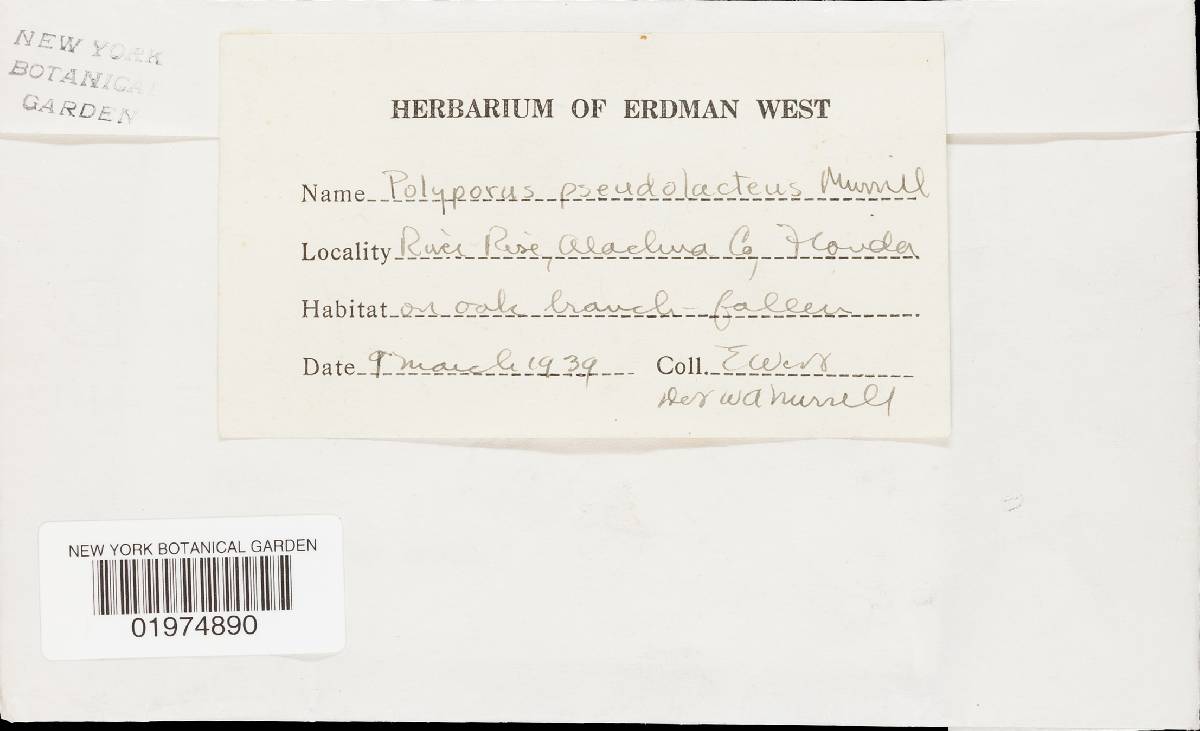 NEW YORK
BOTANICAL
GARDEN
HERBARIUM OF ERDMAN WEST
Name Polyporus pseudolacteus Murrill
Locality River Rise, Alachua Co, Florida
Habitat on oak branch - fallen
Date 9 March 1939 Coll. E West
Det W A Murrill
NEW YORK BOTANICAL GARDEN
01974890